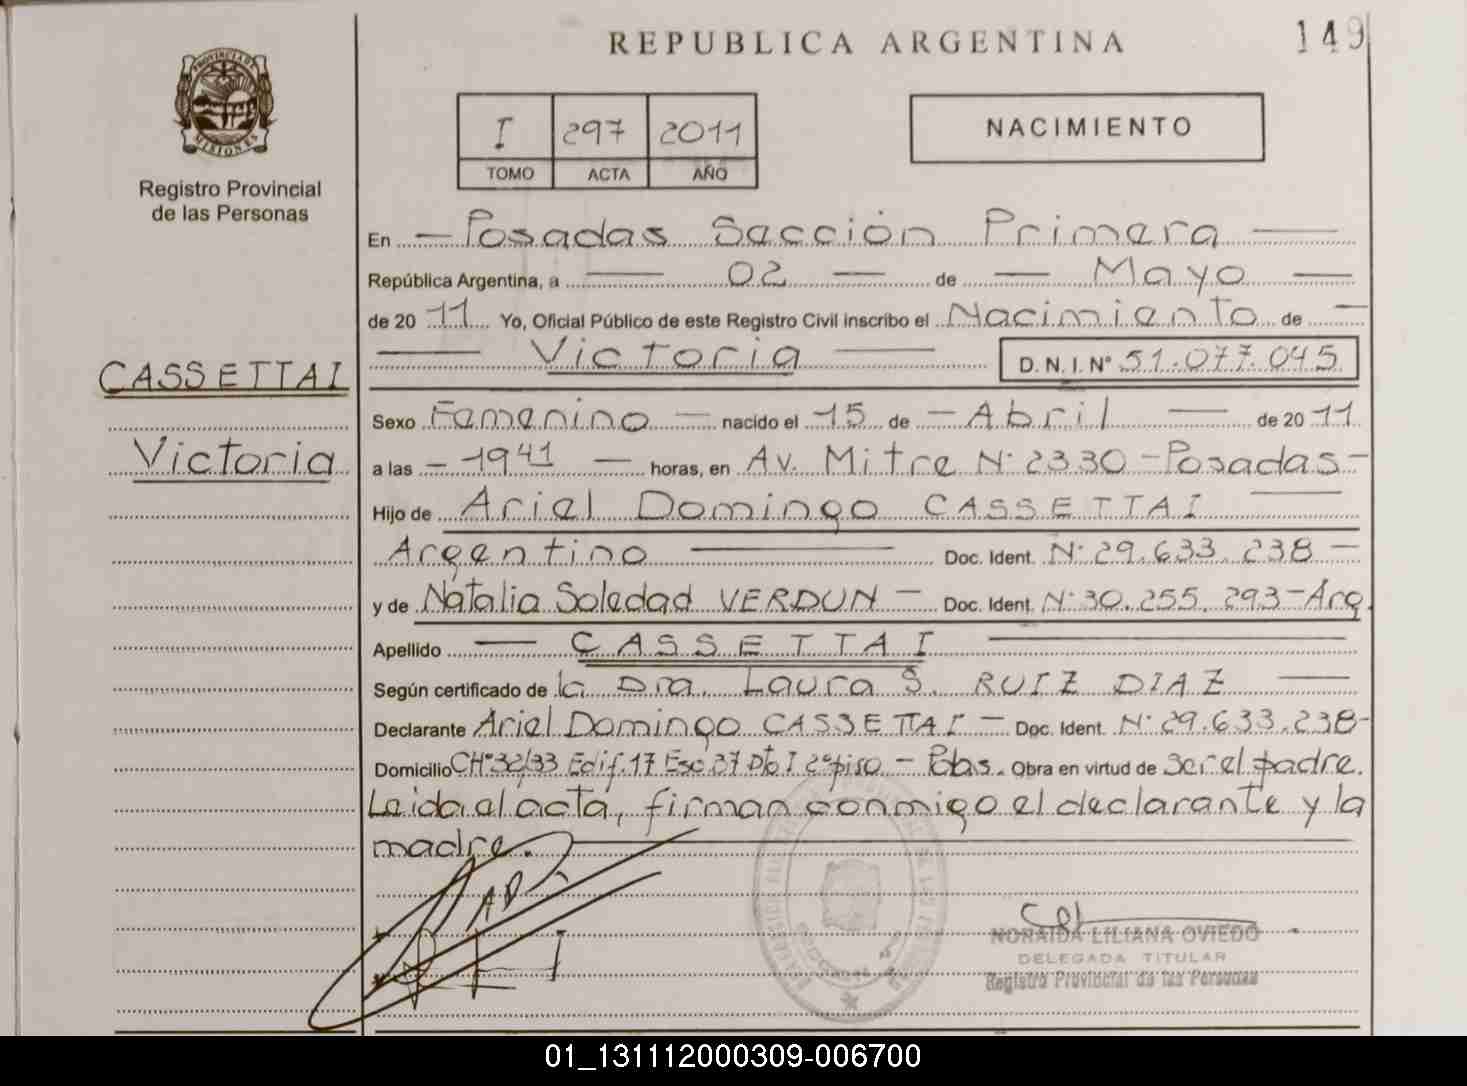 REPUBLICA ARGENTINA
149
PROVINCIA DE MISIONES
Registro Provincial
de las Personas
I 297 2011
TOMO ACTA AÑO
NACIMIENTO
En Posadas Sección Primera
República Argentina, a 02 de Mayo
de 2011 Yo, Oficial Público de este Registro Civil inscribo el Nacimiento de
Victoria D.N.I. Nº 51.077.045
CASSETTAI
Victoria
Sexo Femenino nacido el 15 de Abril de 2011
a las 1941 horas, en Av. Mitre Nº 2330 - Posadas -
Hijo de Ariel Domingo CASSETTAI
Argentino Doc. Ident. Nº 29.633.238 -
y de Natalia Soledad VERDUN - Doc. Ident. Nº 30.255.293 - Arg.
Apellido CASSETTAI
Según certificado de la Dra. Laura S. RUIZ DIAZ
Declarante Ariel Domingo CASSETTAI - Doc. Ident. Nº 29.633.238 -
Domicilio CHº 32/33 Edif. 17 Esc. 37 Dto I 2º piso - Pdas. Obra en virtud de ser el padre.
Leida el acta, firman conmigo el declarante y la
madre.
NORAIDA LILIANA OVIEDO
DELEGADA TITULAR
Registro Provincial de las Personas
01_131112000309-006700